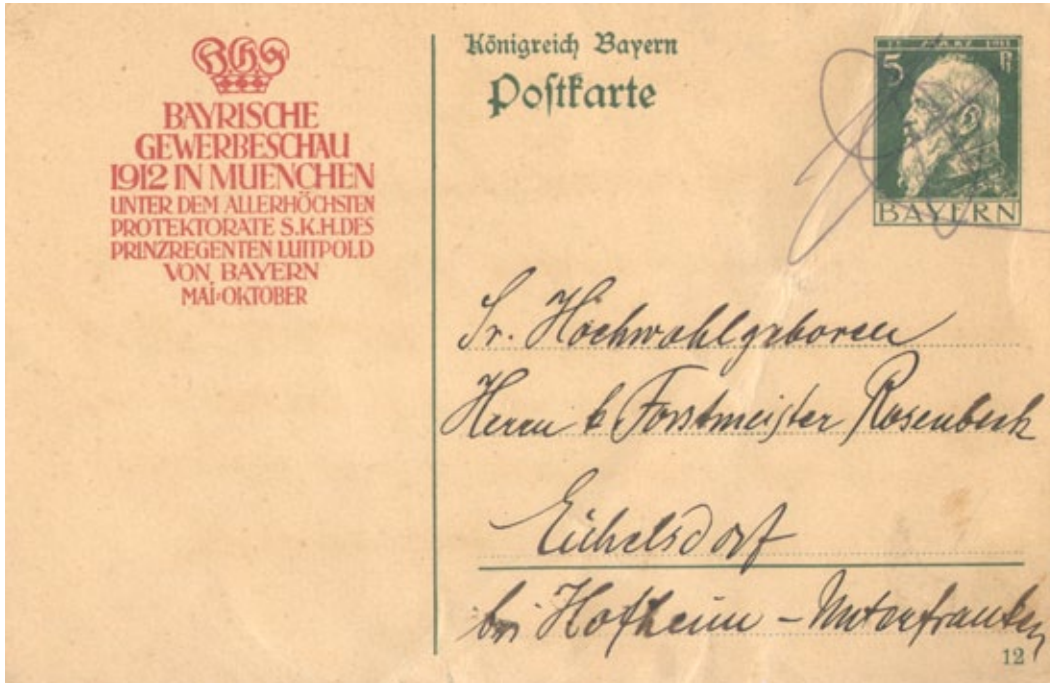 BAYRISCHE
GEWERBESCHAU
1912 IN MUENCHEN
UNTER DEM ALLERHÖCHSTEN
PROTEKTORATE S.K.H.DES
PRINZREGENTEN LUITPOLD
VON BAYERN
MAI-OKTOBER
Königreich Bayern
Postkarte
5 Pf
BAYERN
Sr. Hochwohlgeboren
Herrn k Forstmeister Rosenbeck
Eichelsdorf
bei Hofheim - Unterfranken
12